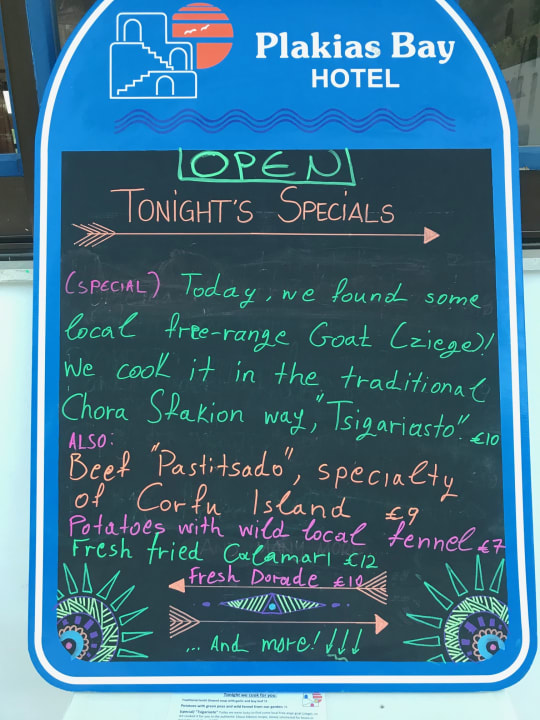 Plakias Bay
HOTEL
OPEN
TONIGHT'S SPECIALS
(SPECIAL) Today, we found some
local free-range Goat (ziege)!
We cook it in the traditional
Chora Sfakion way, "Tsigariasto". €10
ALSO:
Beef "Pastitsado", specialty
of Corfu Island €9
Potatoes with wild local fennel €7
Fresh fried Calamari €12
Fresh Dorade €10
... And more!
Tonight we cook for you: